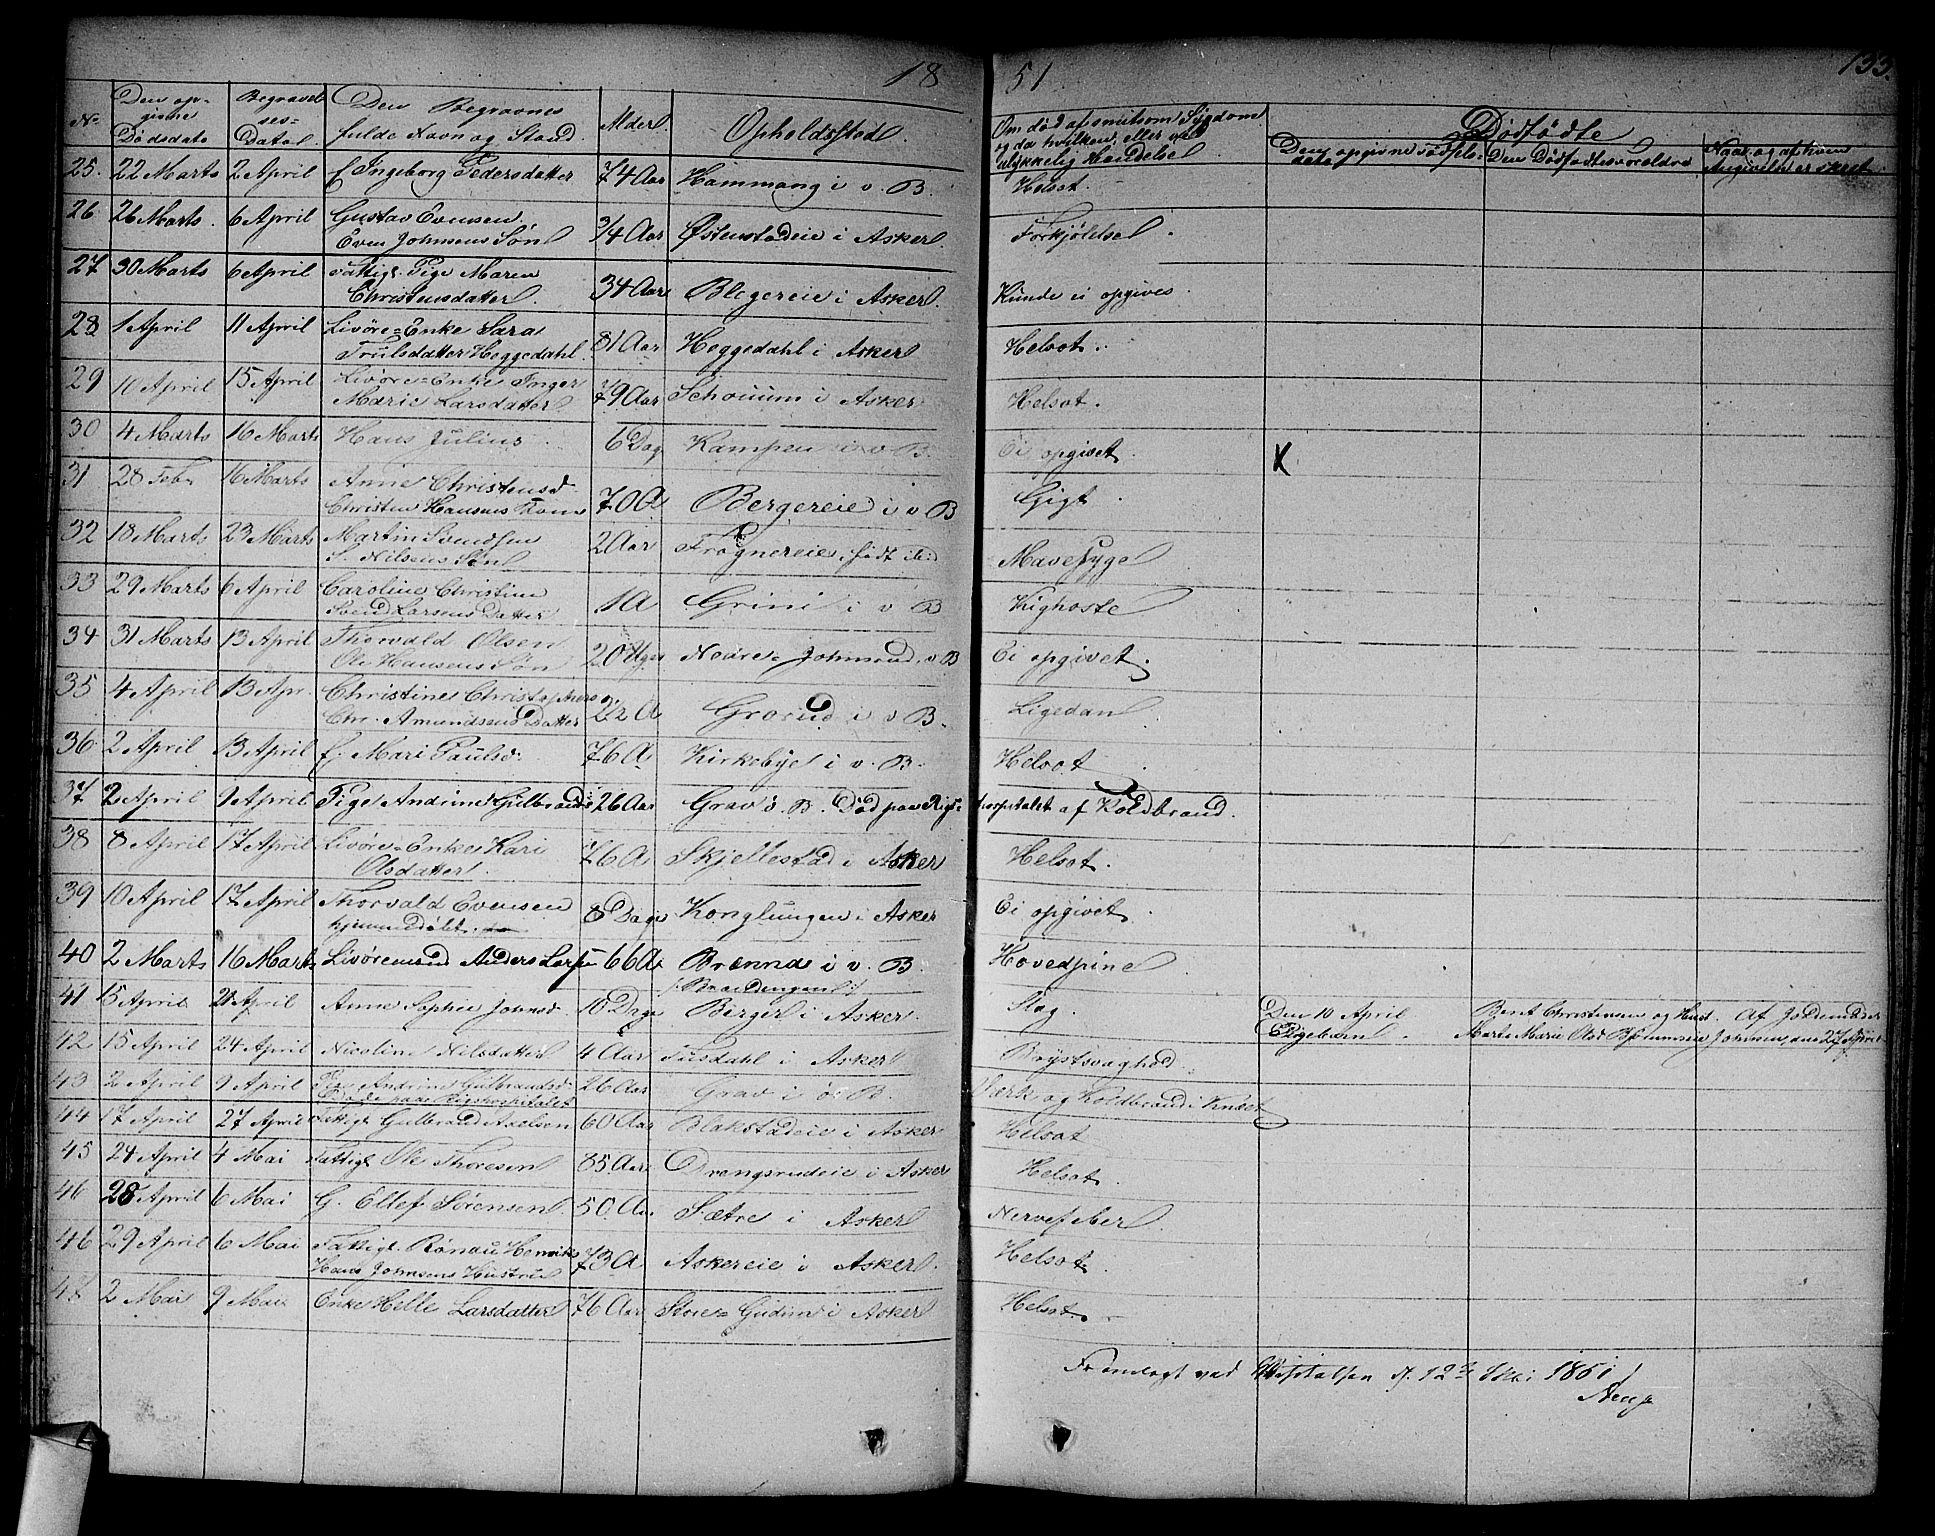 18 51 133.
No Den opgivne Dødsdato Begravelses=Datol. Den Begravnes fulde Navn og Stand Alder. Opholdssted. Om død af smitsom Sygdom og da hvilken, eller ved ulykkelig Hændelse. Dødfødte
Naar og af hvem Angivelse er skeet.
25. 22 Marts 2 April f Ingeborg Pedersdatter 74 Aar Hammang i v. B. Helsot.
26 26 Marts. 6 April Gustav Evensen. 3/4 Aar Østenstadeie i Asker. Forkjølelse.
Even Johnsens Søn
27 30 Marts 6 April Fattigl. Pige Maren 34 Aar Blegereie i Asker. Kunde ei opgives.
Christensdatter.
28 1 April 11 April Livøre=Enke Sara 81 Aar Heggedahl i Asker Helsot.
Trulsdatter Heggedahl.
29 10 April 15 April Livøre=Enke Inger 79 Aar i Asker Helsot.
Marie Larsdatter
30 4 Marts 16 Marts Hans Julius 6 Dag Kampen i v B. Ei opgivet.
31 28 Febr 16 Marts Anne Christensd. 70 A Bergereie i v B Gigt.
Christen Hansens Kone
32 18 Marts 23 Marts Martin Svendsen 2 Aar Frognereie, født ibid Mavesyge
S. Nilsens Søn
33 29 Marts 6 April Caroline Christine 1 A Grini i v B Kighoste
Svend Larsens Datter
34 31 Marts 13 April Thorvald Olsen 20 Uger Nedre=Johnsrud, v B Ei opgivet.
Ole Hansens Søn
35 4 April 13 Apr. Christine Christophers 22 A Grorud i v B. Ligedan
Chr. Amundsens Datter
36 2 April 13 April f. Mari Paulsd. 76 A Kirkebye i v. B. Helsot
37 2 April 9 April Pige Andrine Gulbrands 26 Aar Grav ø. B. Død paa Rigshospitalet af Koldbrand.
38 8 April 17 April Livøre=Enke Kari 76 A Skjellestad i Asker Helsot.
Olsdatter.
39 10 April 17 April Thorvald Evensen 8 Dage Konglungen i Asker Ei opgivet.
hjemmedøbt.
40 2 Marts 16 Marts Livøremand Anders Larsen 66 A Brenna i v. B. Hovedpine
41 15 April 21 April Anne Sophie Johnsd. 10 Dage Birger i Asker. Slag. Den 10 April Berit Christensen og Hust. Af Jodemoder
Pigebarn. Marte Marie Olsd Johnsen, den 27 April
42 15 April 24 April Nicoline Nilsdatter 4 Aar i Asker Brystsvaghed
43 2 April 9 April Pige Andrine Gulbrandsd. 26 Aar Grav i ø. B. Værk og Koldbrand i Knæet
Døde paa Rigshospitalet
44 17 April 27 April Fattigl. Gulbrand Axelsen 60 Aar Blakstadeie i Asker Helsot
45 24 April 4 Mai Fattigl Ole Thoresen 85 Aar Drengsrudeie i Asker Helsot.
46 28 April 6 Mai G. Ellef Sørensen 50 Aar Sætre i Asker Nervefeber.
46 29 April 6 Mai Fattigl. Rønau Henriks 73 A Askereie i Asker. Helsot.
Hans Johnsens Hustrue
47 2 Mai 9 Mai Enke Helle Larsdatter 76 Aar Store=Gudim i Asker Helsot.
Fremlagt ved Visitatsen d. 12te Mai 1851